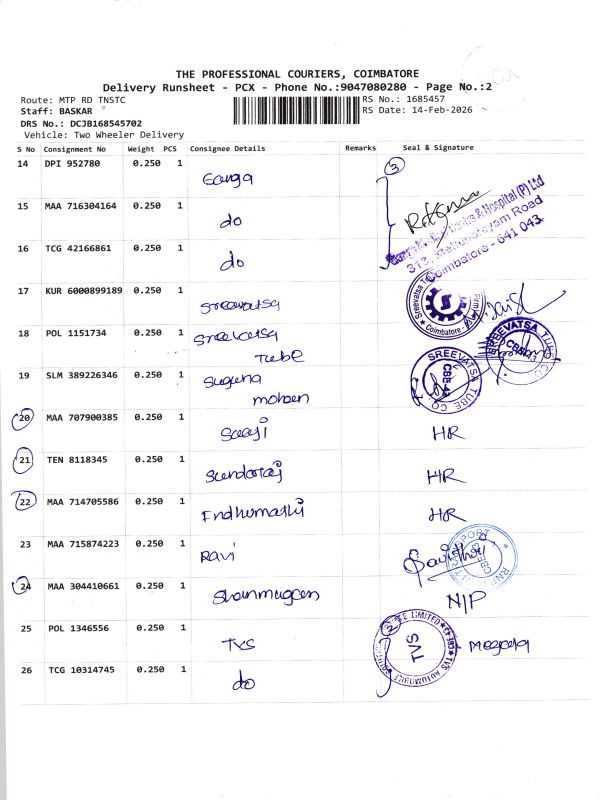 THE PROFESSIONAL COURIERS, COIMBATORE
Delivery Runsheet - PCX - Phone No.:9047080280 - Page No.:2
Route: MTP RD TNSTC RS No.: 1685457
Staff: BASKAR RS Date: 14-Feb-2026
DRS No.: DCJB168545702
Vehicle: Two Wheeler Delivery
S No Consignment No Weight PCS Consignee Details Remarks Seal & Signature
14 DPI 952780 0.250 1 Ganga 3
15 MAA 716304164 0.250 1 do
& Hospital (P) Ltd
313, Mettupalayam Road
Coimbatore - 641 043.
16 TCG 42166861 0.250 1 do
17 KUR 6000899189 0.250 1 Sreevatsa
Coimbatore
18 POL 1151734 0.250 1 Sreevatsa
Tube
SREEVATSA TUBE CO
19 SLM 389226346 0.250 1 Suguna
mohan
SREEVATSA TUBE CO
CBE-43
20 MAA 707900385 0.250 1 Saaji HR
21 TEN 8118345 0.250 1 Sundaraj HR
22 MAA 714705586 0.250 1 Indhumathi HR
23 MAA 715874223 0.250 1 Ravi
24 MAA 304410661 0.250 1 Shanmugam N/P
25 POL 1346556 0.250 1 TVS 2
LIMITED
TVS
26 TCG 10314745 0.250 1 do